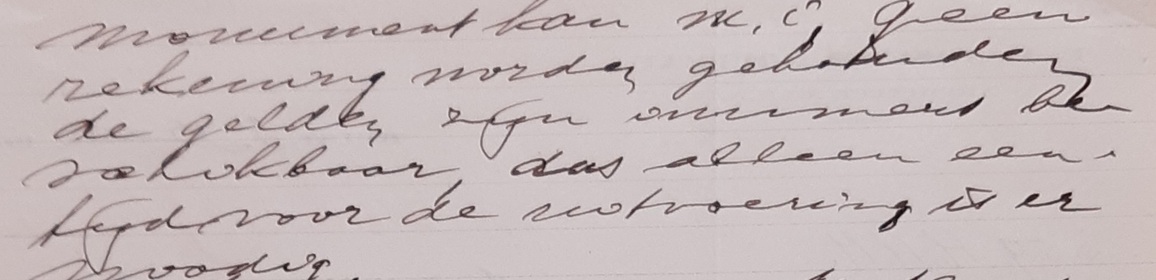 monument kan m.i. geen
rekening worden gehouden,
de gelden zijn immers be
schikbaar, dus alleen een
tijd voor de uitvoering is er
noodig.